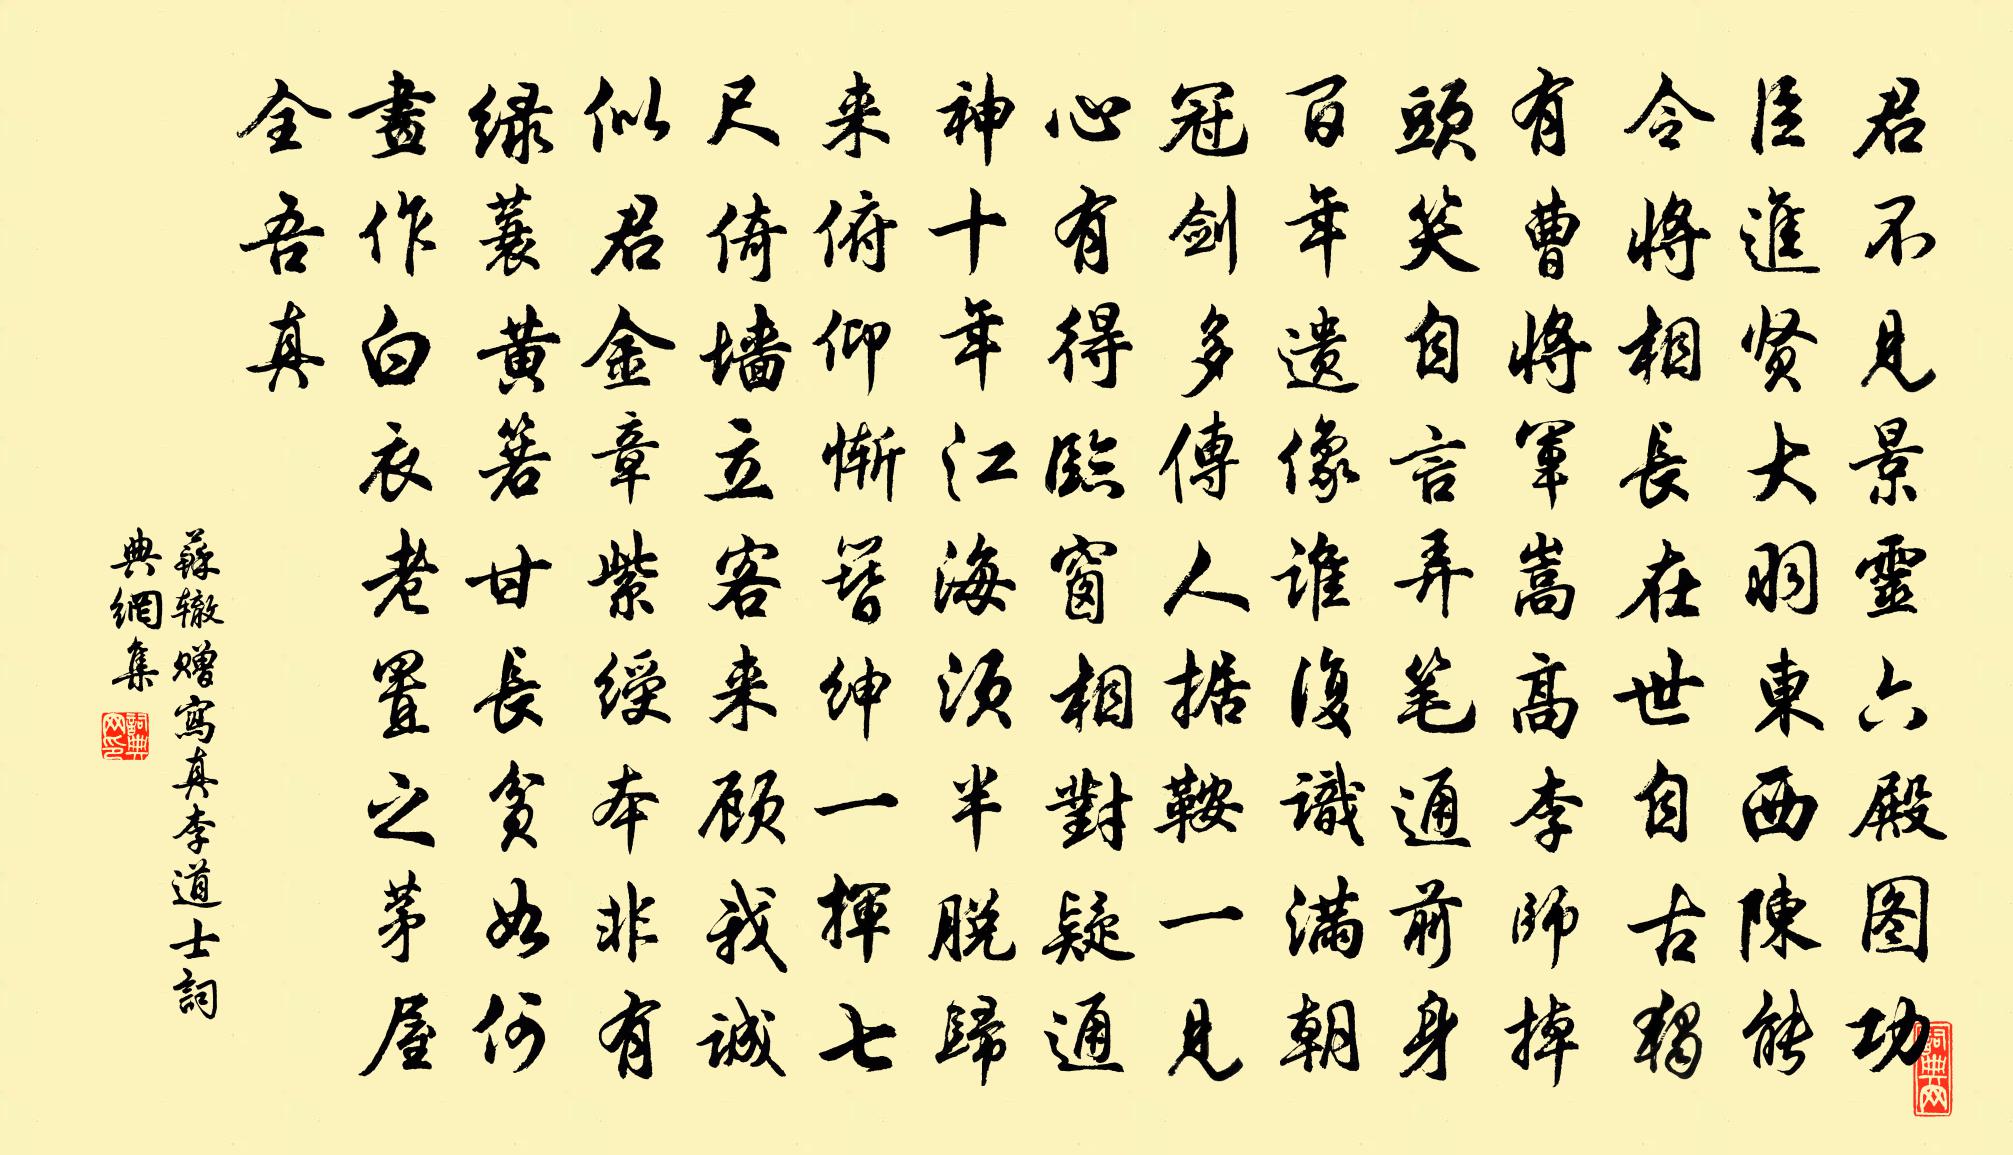 君不見景靈六殿图功
臣進贤大羽東西陳能
令將相長在世自古獨
有曹將軍嵩高李師掉
頭笑自言弄笔通前身
百年遗像誰復識滿朝
冠剑多傳人据鞍一見
心有得臨窗相對疑通
神十年江海須半脱歸
来俯仰惭簪绅一揮七
尺倚墙立客来顾我誠
似君金章紫绶本非有
绿蓑黄箬甘長貧如何
畫作白衣老置之茅屋
全吾真
蘇辙赠寫真李道士詞
典網集
詞典网印
詞典网